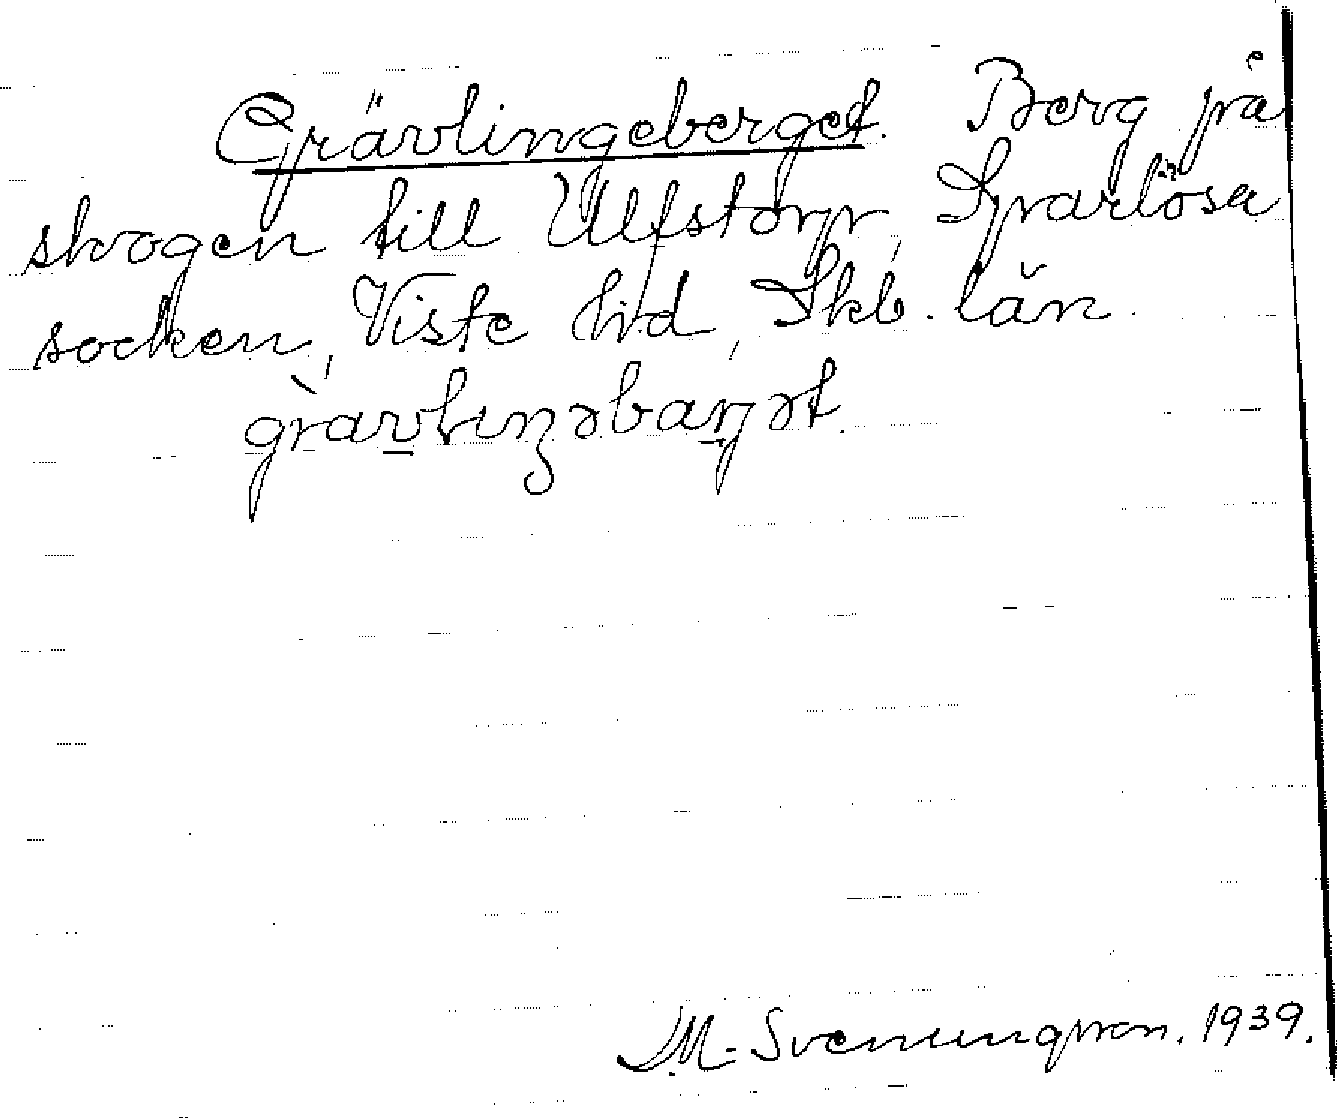 Grävlingeberget. Berg på
skogen till Ulfstorp, Sparlösa
socken, Viste hd, Skb. län.
gràvlıŋəbaŋət.
M. Svenungsson. 1939.